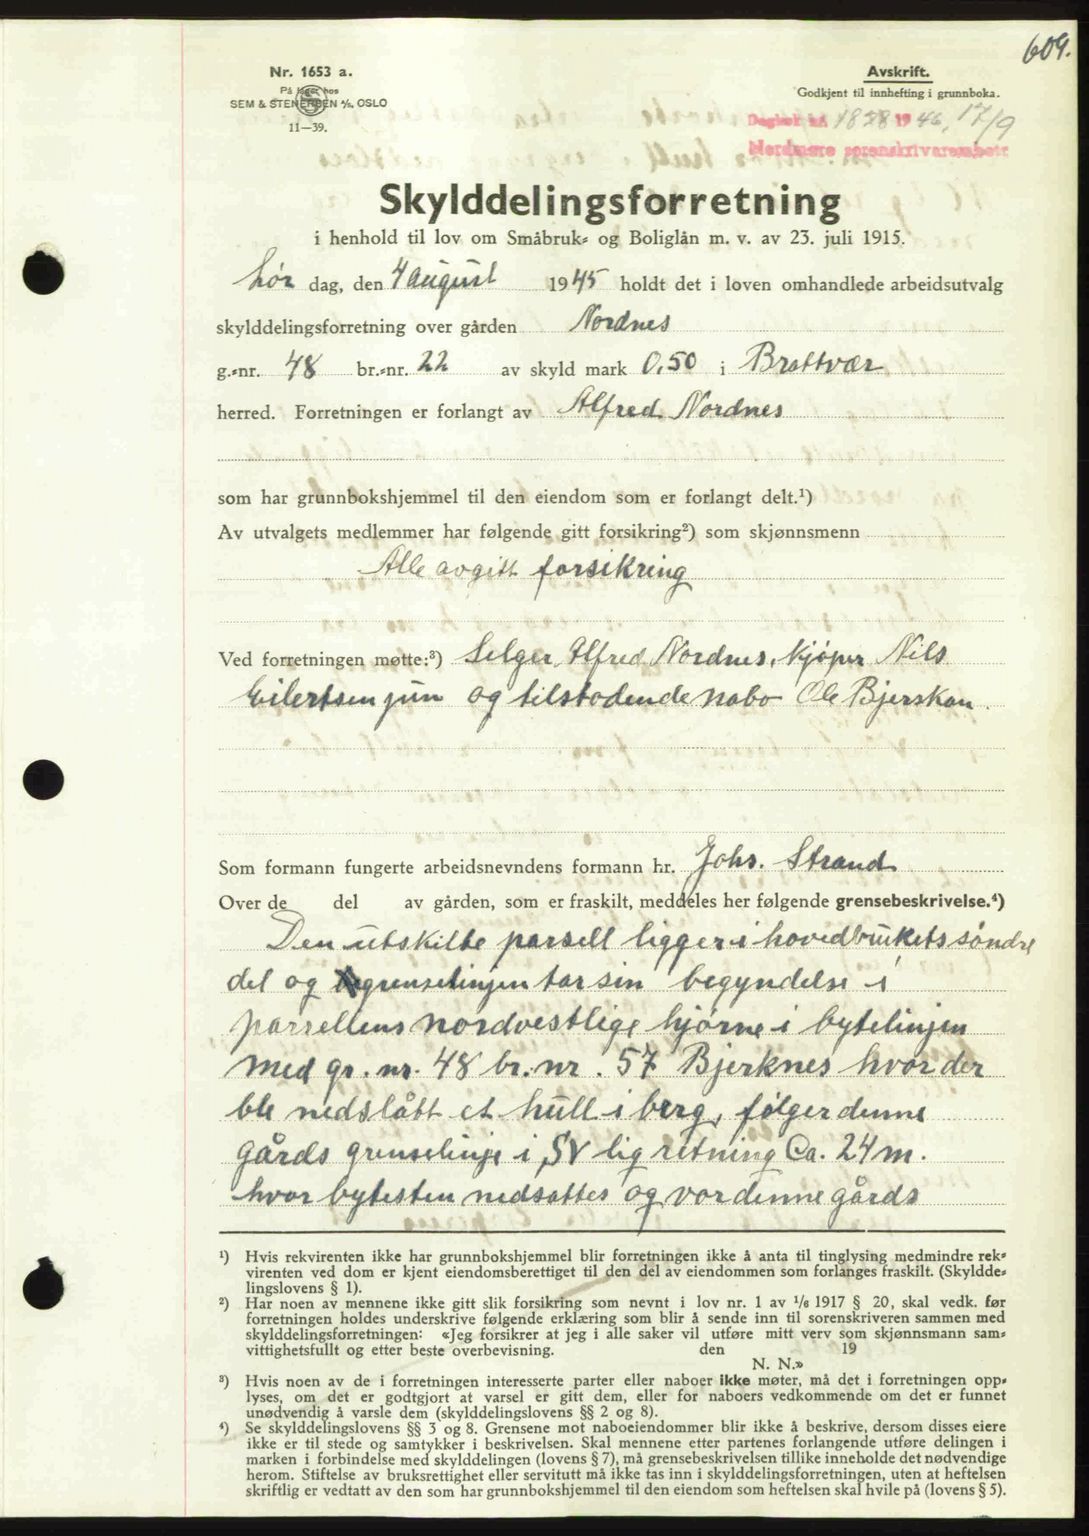 609.
Nr. 1653 a.
På lager hos
SEM & STENERSEN A/S, OSLO
11—39.
Avskrift.
Godkjent til innhefting i grunnboka.
Dagbok nr. 1828 1946, 17/9
Nordmøre sorenskriverembete
Skylddelingsforretning
i henhold til lov om Småbruk- og Boliglån m. v. av 23. juli 1915.
Lør dag, den 4 august 1945 holdt det i loven omhandlede arbeidsutvalg
skylddelingsforretning over gården Nordnes
g.-nr. 48 br.-nr. 22 av skyld mark 0,50 i Brattvær
herred. Forretningen er forlangt av Alfred Nordnes
som har grunnbokshjemmel til den eiendom som er forlangt delt.¹)
Av utvalgets medlemmer har følgende gitt forsikring²) som skjønnsmenn
Alle avgitt forsikring
Ved forretningen møtte:³) Selger, Alfred Nordnes, kjøper Nils
Eilertsen jun og tilstodende nabo Ole Bjerskan.
Som formann fungerte arbeidsnevndens formann hr. Johs. Strand
Over de del av gården, som er fraskilt, meddeles her følgende grensebeskrivelse.⁴)
Den utskilte parsell ligger i hovedbrukets søndre
del og grenselinjen tar sin begyndelse i
parsellens nordvestlige hjørne i bytelinjen
med gr. nr. 48 br. nr. 57 Bjerknes hvor der
ble nedslått et hull i berg, følger denne
gårds grenselinje i SV lig retning Ca. 24 m.
hvor bytesten nedsattes og vor denne gårds
¹) Hvis rekvirenten ikke har grunnbokshjemmel blir forretningen ikke å anta til tinglysing medmindre rek-
virenten ved dom er kjent eiendomsberettiget til den del av eiendommen som forlanges fraskilt. (Skyldde-
lingslovens § 1).
²) Har noen av mennene ikke gitt slik forsikring som nevnt i lov nr. 1 av 1/6 1917 § 20, skal vedk. før
forretningen holdes underskrive følgende erklæring som blir å sende inn til sorenskriveren sammen med
skylddelingsforretningen: «Jeg forsikrer at jeg i alle saker vil utføre mitt verv som skjønnsmann sam-
vittighetsfullt og etter beste overbevisning. den 19
N. N.»
³) Hvis noen av de i forretningen interesserte parter eller naboer ikke møter, må det i forretningen opp-
lyses, om det er godtgjort at varsel er gitt dem, eller for naboers vedkommende om det er funnet
unødvendig å varsle dem (skylddelingslovens §§ 2 og 8).
⁴) Se skylddelingslovens §§ 3 og 8. Grensene mot naboeiendommer blir ikke å beskrive, dersom disses eiere
ikke er til stede og samtykker i beskrivelsen. Skal mennene etter partenes forlangende utføre delingen i
marken i forbindelse med skylddelingen (lovens § 7), må grensebeskrivelsen tillike inneholde det nødvendige
herom. Stiftelse av bruksrettighet eller servitutt må ikke tas inn i skylddelingsforretningen, uten at heftelsen
skriftlig er vedtatt av den som har grunnbokshjemmel til den eiendom som heftelsen skal hvile på (lovens § 5).